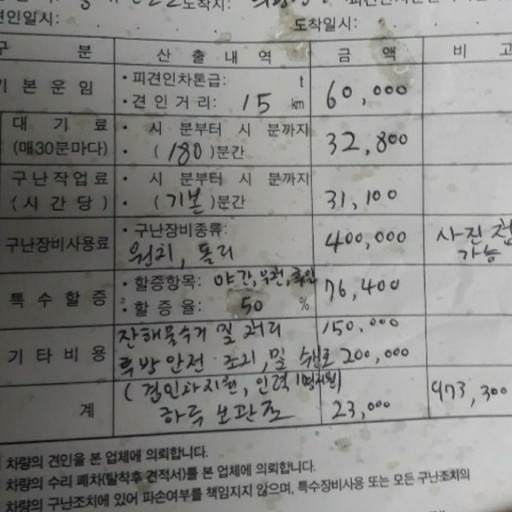 도착지:
견인일시:
도착일시:
구 분 산 출 내 역 금 액 비 고
기 본 운 임 • 피견인차톤급: t
• 견 인 거 리: 15 km 60,000
대 기 료 • 시 분부터 시 분까지
(매30분마다) • (180)분간 32,800
구난작업료 • 시 분부터 시 분까지
(시 간 당) • (기본)분간 31,100
구난장비사용료 • 구난장비종류:
윈치, 돌리 400,000 사진 첨
가능
특 수 할 증 • 할증항목: 야간,우천,휴일
• 할 증 율: 50 % 76,400
잔해물수거 및 처리 150,000
기 타 비 용 후방안전 조치, 및 200,000
(견인차지원, 인력1명지원)
계 하두 보관료 23,000 973,300
차량의 견인을 본 업체에 의뢰합니다.
차량의 수리 폐차(탈착후 견적서)를 본 업체에 의뢰합니다.
차량의 구난조치에 있어 파손여부를 책임지지 않으며, 특수장비사용 또는 모든 구난조치의